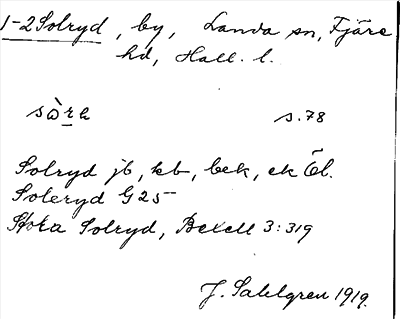 1-2 Solryd, by, Landa sn, Fjäre
hd, Hall. l.
s.78
Solryd jb, kb, bek, ek Öl.
Soleryd G 25
Stora Solryd, Bexell 3:319
J. Sahlgren 1919.